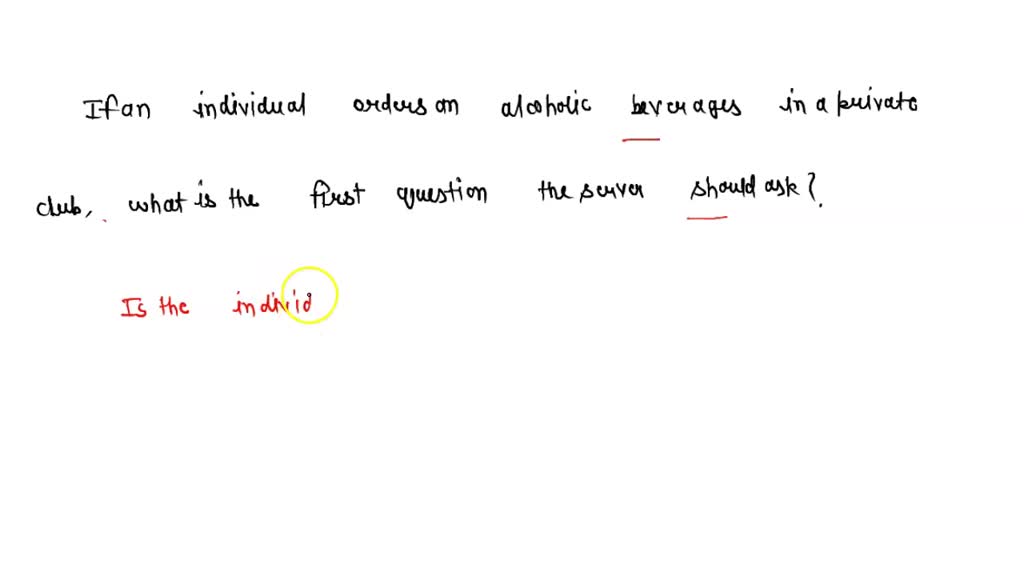 If an individual orders an alcoholic beverages in a private
club, what is the first question the server should ask?
Is the individ